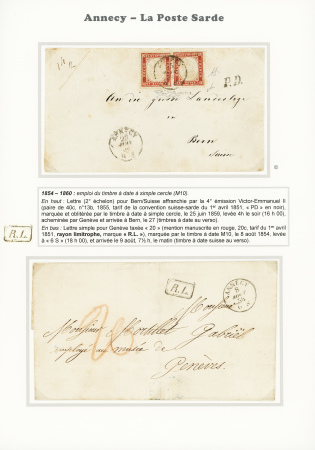 Annecy – La Poste Sarde
P.D.
Bern
Suisse
ANNECY
1854 – 1860 : emploi du timbre à date à simple cercle (M10).
En haut : Lettre (2° échelon) pour Bern/Suisse affranchie par le 4° émission Victor-Emmanuel II
(paire de 40c, n°13b, 1855, tarif de la convention suisse-sarde du 1er avril 1851, « PD » en noir),
marquée et oblitérée par le timbre à date à simple cercle, le 25 juin 1859, levée 4h le soir (16 00),
acheminée par Genève et arrivée à Bern, le 27 (timbres date suisse au verso).
En bas : Lettre simple pour Genève taxée « 20 » (mention manuscrite en rouge, 20c, tarif du 1er avril
1851, rayon limitrophe, marque « R.L. »), marquée par le timbre à date M10, le 8 août 1854, levée
à « 6 S » (18 h 00), et arrivée le 9 août, 7½ h. le matin (timbre date suisse au verso).
R.L.
R.L.
ANNECY
20
Monsieur
Monsieur Mortillet Gabriel
employé au musée de
Genèves.